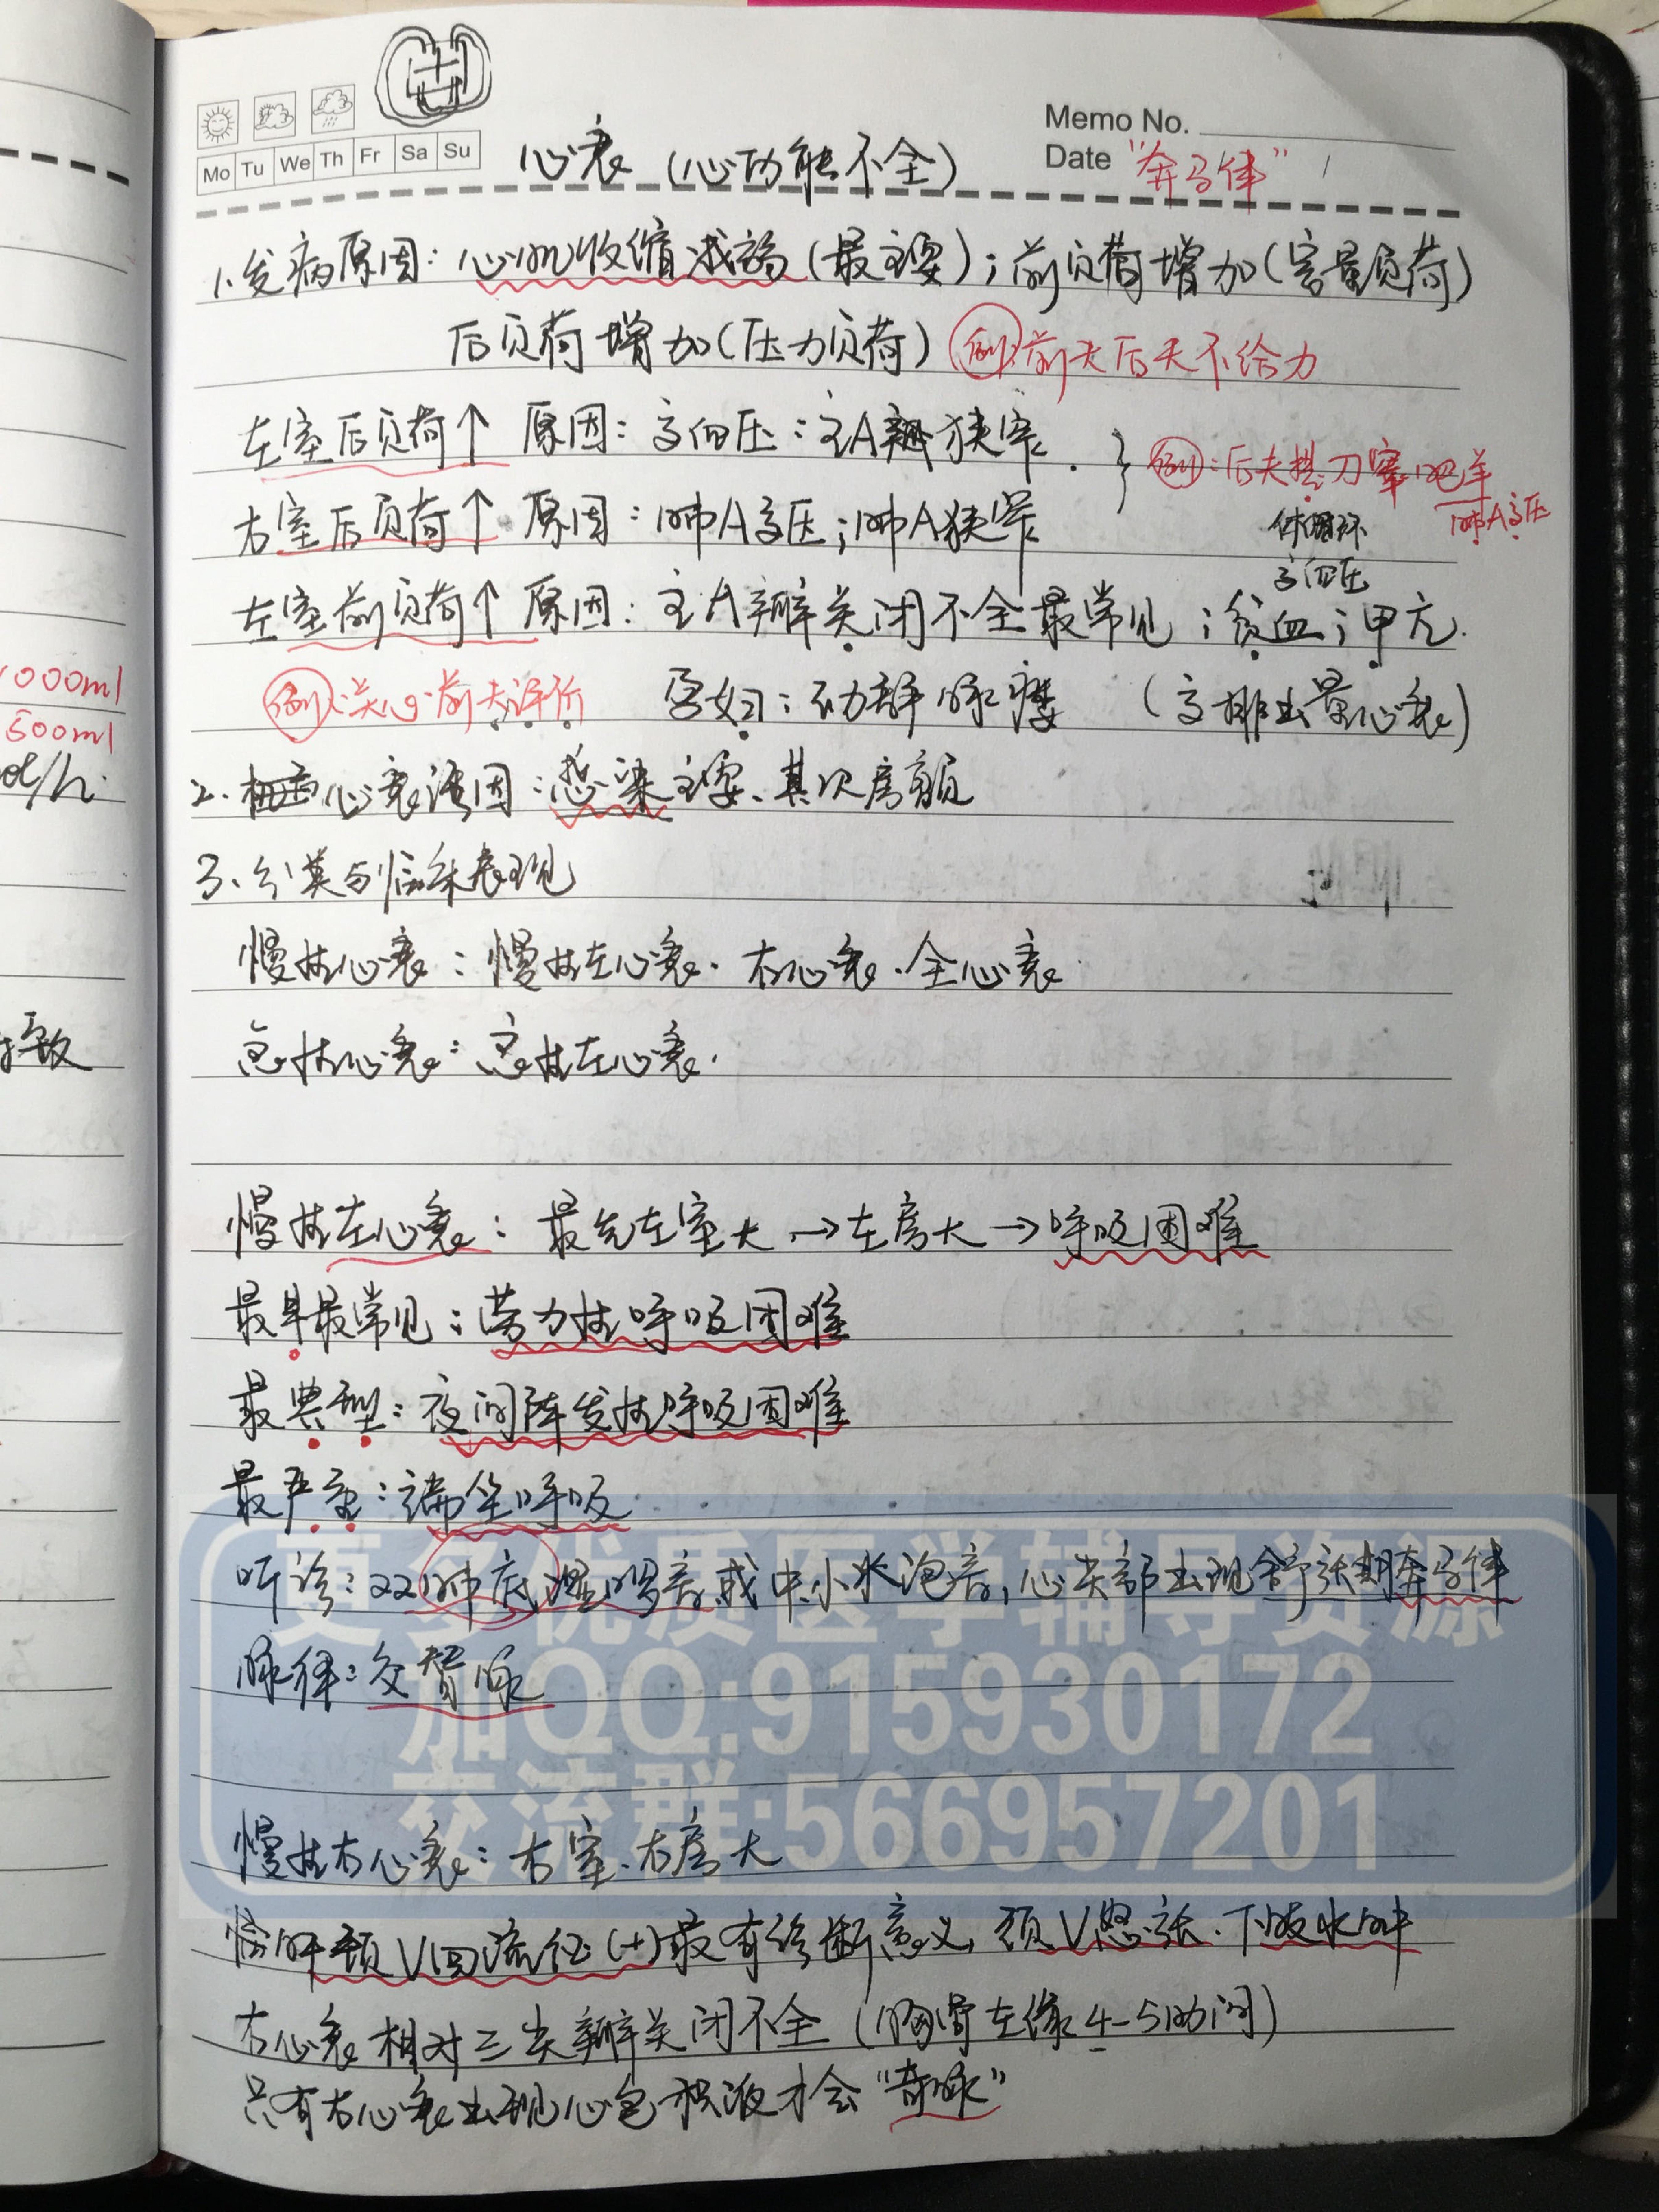 Mo Tu We Th Fr Sa Su
Memo No.
Date "奔马律"
心衰（心功能不全）
1.发病原因：心肌收缩减弱（最主要）；前负荷增加（容量负荷）
后负荷增加（压力负荷）例：前夫后夫不给力
左室后负荷↑ 原因：高血压；主A瓣狭窄.
右室后负荷↑ 原因：肺A高压；肺A狭窄
例：后夫提刀宰
肺A高压
体循环
高血压
左室前负荷↑ 原因：主A瓣关闭不全最常见；贫血；甲亢.
例：关心前夫评价 孕妇；动静脉瘘 （高排出量心衰）
2. 心衰诱因：感染主要、其次房颤
3、分类与临床表现
慢性心衰：慢性左心衰、右心衰、全心衰
急性心衰：急性左心衰.
慢性左心衰：最先左室大→左房大→呼吸困难
最早最常见：劳力性呼吸困难
最典型：夜间阵发性呼吸困难
最严重：端坐呼吸
听诊：双肺底湿啰音或中小水泡音，心尖部出现舒张期奔马律
脉律：交替脉
慢性右心衰：右室、右房大
肝颈V回流征(+)最有诊断意义，颈V怒张、下肢水肿
右心衰相对三尖瓣关闭不全（胸骨左缘4-5肋间）
只有右心衰出现心包积液才会"奇脉"
更多优质医学辅导资源
加QQ:915930172
交流群:566957201
1000ml
500ml